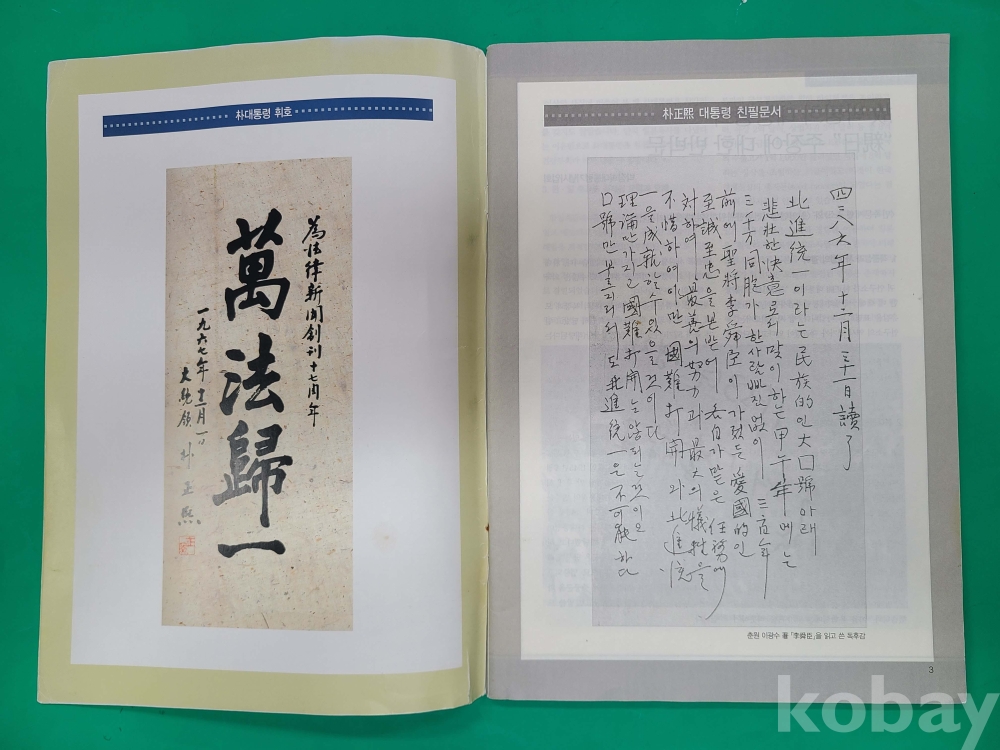 朴대통령 휘호
為法律新聞創刊十七周年
萬法歸一
一九六七年 十二月 一日
大統領 朴正熙
朴正熙 대통령 친필문서
四二八六年 十二月 三十一日 讀了
北進統一이라는 民族的인 大口號아래
悲壯한 決意로의 맞이하는 甲午年에는
三千万同胞가 한사람빠진없이 三百年
前에 聖將李舜臣이 가젔든 愛國的인
至誠至忠을본받어 各自가맡은 任務에
対하여 最善의努力과 最大의犧牲을
不惜하여야만 國難打開와 北進統
一을成就할수있을것이다
理論만가지고 國難打開는않되는것이요
口號만불러서도 北進統一은 不可能하다
춘원 이광수 著 「李舜臣」을 읽고 쓴 독후감
3
kobay